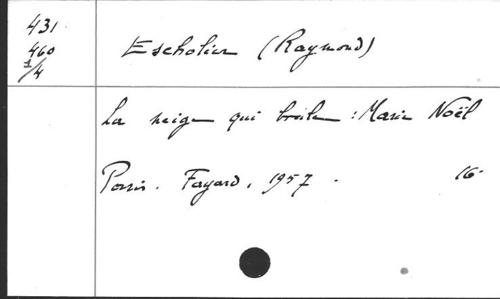 431
460
1/4
Escholier (Raymond)
La neige qui brûle : Marie Noël
Paris. Fayard, 1957. 16°